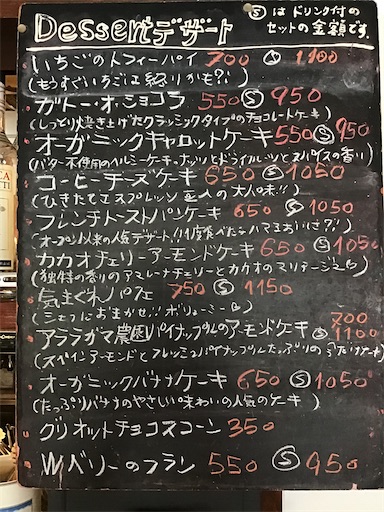 Dessertデザート
Ⓢ は ドリンク付の
セットの金額です。
いちごのトフィーパイ 700 Ⓢ 1100
(もうすぐいちごは終りかも?!)
ガトー・オ・ショコラ 550 Ⓢ 950
(しっとり焼き上げたクラッシックタイプのチョコレートケーキ)
オーガニックキャロットケーキ 550 Ⓢ 950
(バター不使用のヘルシーケーキ。ナッツとドライフルーツとスパイスの香り)
コーヒーチーズケーキ 650 Ⓢ 1050
(ひきたてエスプレッソ 大人の大人味!!)
フレンチトーストパンケーキ 650 Ⓢ 1050
(オープン以来の人気デザート!!1度食べたらハマるおいしさ?!)
カカオチェリーアーモンドケーキ 650 Ⓢ 1050
(独特の香りのアマレーナチェリーとカカオのマリアージュ)
気まぐれパフェ 750 Ⓢ 1150
(シェフにおまかせ!! ボリューミー)
アララガマ農園パイナップルのアーモンドケーキ 700 Ⓢ 1100
(スペインアーモンドとフレッシュパイナップルたっぷりの
オーガニックバナナケーキ 650 Ⓢ 1050
(たっぷりバナナのやさしい味わいの人気のケーキ)
グリオットチョコスコーン 350
Wベリーのフラン 550 Ⓢ 950